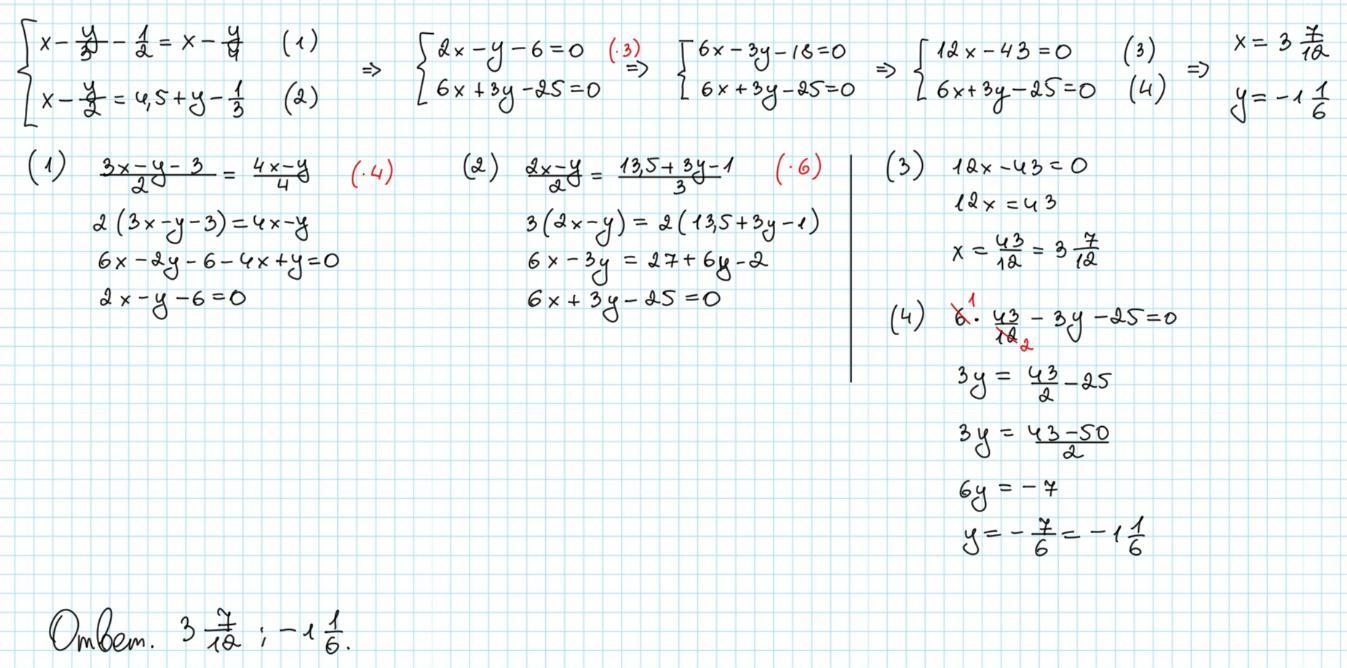 { x - y/3 - 1/2 = x - y/4 (1)
x - y/2 = 4,5 + y - 1/3 (2)
=> { 2x - y - 6 = 0 (·3)
6x + 3y - 25 = 0
=> { 6x - 3y - 18 = 0
6x + 3y - 25 = 0
=> { 12x - 43 = 0 (3)
6x + 3y - 25 = 0 (4)
=> x = 3 7/12
y = -1 1/6
(1) (3x - y - 3)/2 = (4x - y)/4 (·4)
2(3x - y - 3) = 4x - y
6x - 2y - 6 - 4x + y = 0
2x - y - 6 = 0
(2) (2x - y)/2 = (13,5 + 3y - 1)/3 (·6)
3(2x - y) = 2(13,5 + 3y - 1)
6x - 3y = 27 + 6y - 2
6x + 3y - 25 = 0
(3) 12x - 43 = 0
12x = 43
x = 43/12 = 3 7/12
(4) 6 1 · 43/12 2 - 3y - 25 = 0
3y = 43/2 - 25
3y = (43 - 50)/2
6y = -7
y = - 7/6 = -1 1/6
Ответ. 3 7/12 ; -1 1/6.